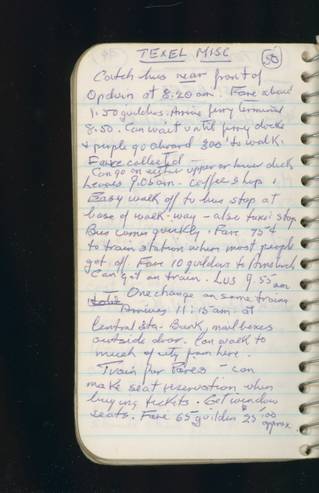 TEXEL MISC
50
Catch bus near front of
Opduin at 8:20 am. Fare about
1.50 guilders. Arrive ferry terminal
8:50. Can wait until ferry docks
& people go aboard 300' to walk.
Fare collected
Can go on either upper or lower deck
Leaves 9:05 am. Coffee shop.
Easy walk off to bus stop at
base of walk-way - also taxi stop
Bus comes quickly. Fare 75¢
to train station where most people
get off. Fare 10 guilders to
Can get on train. Lvs 9:55 am
One change on some trains
Arrives 11:15 am at
Central Sta. Bank, mail boxes
outside door. Can walk to
much of city from here.
Train for Paris - can
make seat reservation when
buying tickets. Get window
seats. Fare 65 guilders $25.00
approx.